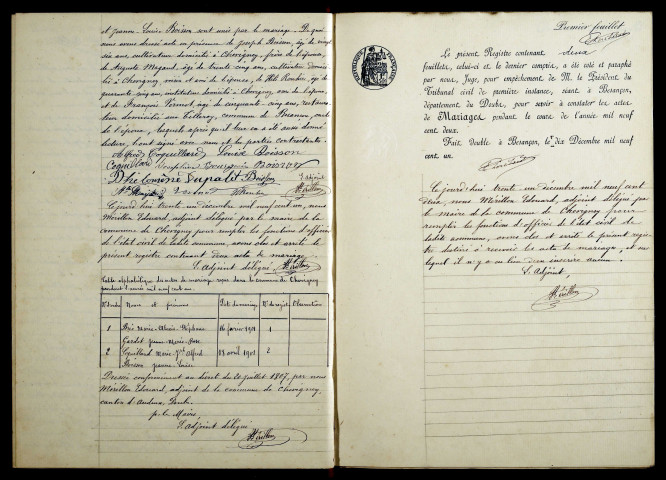 et Jeanne-Louise Boisson sont unis par le mariage. De quoi
nous avons dressé acte en présence de Joseph Boisson, âgé de vingt
six ans, cultivateur domicilié à Chevigney, frère de l'épouse,
de Auguste Magaud, âgé de trente-cinq ans, cultivateur domicilié
à Chevigney, ami de l'époux, de
quarante-cinq ans, instituteur domicilié à Chevigney, ami de l'époux,
et de François Vernot, âgé de cinquante-cinq ans,
domicilié aux Tilleroy, commune de Besançon, oncle
de l'épouse, lesquels après qu'il leur en a été aussi donné
lecture, l'ont signé avec nous et les parties contractantes.
Alfred Coquillard Louise Boisson
Coquillard Joséphine Bourgoin Boisson
Philomène Dupalit Boisson
L'adjoint
Vernot Mérillon
Cejourd'hui trente un décembre mil neuf cent un, nous
Mérillon Edouard, adjoint délégué par le maire de la
commune de Chevigney pour remplir les fonctions d'officier
de l'état civil de ladite commune, avons clos et arrêté le
présent registre contenant deux acte de mariage.
L'adjoint délégué Mérillon
Table alphabétique des actes de mariage reçus dans la commune de Chevigney
pendant l'année mil neuf cent un.
Nos d'ordre Noms et prénoms Date du mariage Nos du registre Observations
1 Marie-Alexis-Stéphane 16 février 1901 1
Gardot Jeanne-Marie-Rose
2 Coquillard Marie-Jph Alfred 18 avril 1901 2
Boisson Jeanne-Louise
Dressée conformément au décret du 20 juillet 1807, par nous
Mérillon Edouard, adjoint de la commune de Chevigney,
canton d'Audeux, Doubs.
p. le Maire,
L'adjoint délégué
Mérillon
Premier feuillet
Le présent Registre contenant deux
feuillets, celui-ci et le dernier compris, a été coté et paraphé
par nous, Juge, pour empêchement de M. le Président du
Tribunal civil de première instance, séant à Besançon,
département du Doubs, pour servir à constater les actes
de Mariages pendant le cours de l'année mil neuf
cent deux.
Fait, double à Besançon, le dix Décembre mil neuf
cent un.
Cejourd'hui trente un décembre mil neuf cent
deux, nous Mérillon Edouard, adjoint délégué par
le maire de la commune de Chevigney pour
remplir les fonctions d'officier de l'état civil de
ladite commune, avons clos et arrêté le présent registre
destiné à recevoir les actes de mariages, et sur
lequel il n'y a eu lieu d'en inscrire aucun.
L'Adjoint,
Mérillon